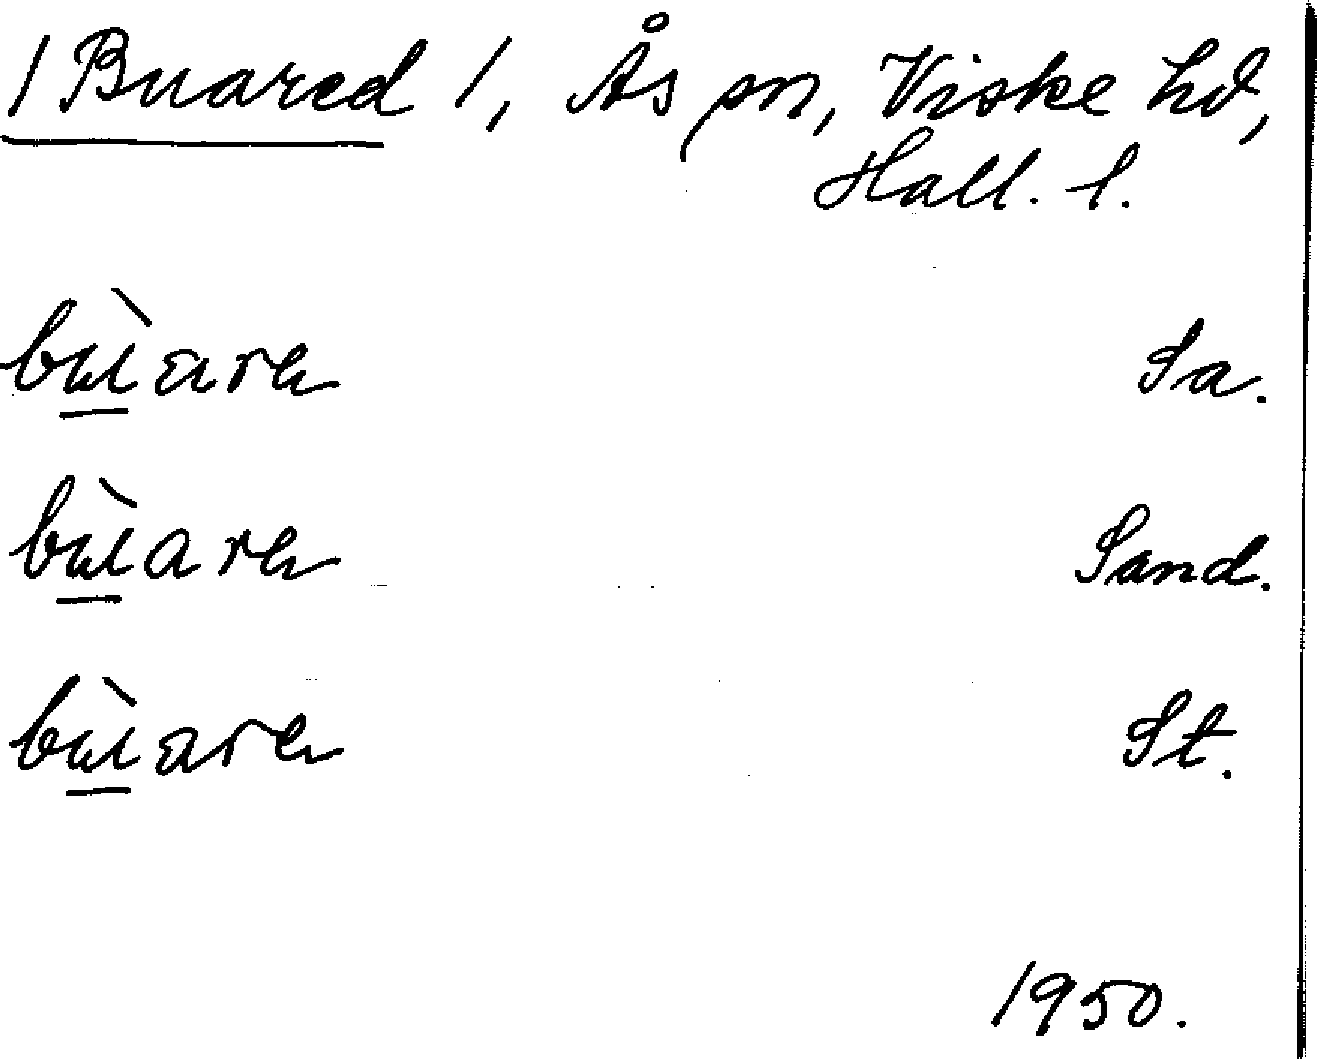 / Buared /, Ås sn, Viske hd,
Hall. l.
bùare Sa.
bùare Sand.
bùare St.
1950.